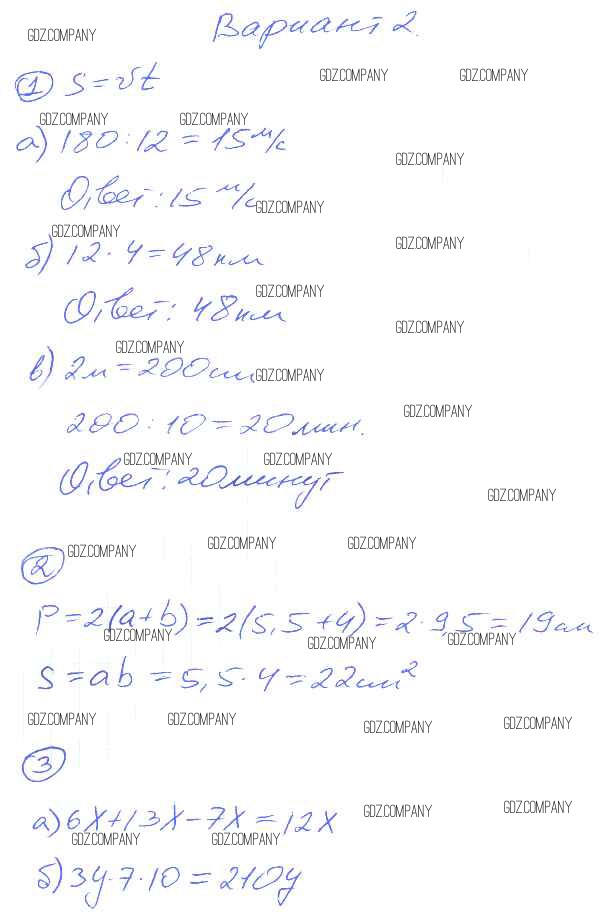 Вариант 2.
GDZ.COMPANY
① S = vt
GDZ.COMPANY GDZ.COMPANY
GDZ.COMPANY GDZ.COMPANY
а) 180 : 12 = 15 м/с
GDZ.COMPANY
Ответ: 15 м/с
GDZ.COMPANY
GDZ.COMPANY
GDZ.COMPANY
б) 12 · 4 = 48 км
GDZ.COMPANY
Ответ: 48 км
GDZ.COMPANY
GDZ.COMPANY
в) 2м = 200см
GDZ.COMPANY
GDZ.COMPANY
200 : 10 = 20 мин.
GDZ.COMPANY GDZ.COMPANY
Ответ: 20 минут
GDZ.COMPANY
GDZ.COMPANY GDZ.COMPANY GDZ.COMPANY
②
P = 2(a+b) = 2(5,5+4) = 2 · 9,5 = 19см
GDZ.COMPANY GDZ.COMPANY GDZ.COMPANY
S = ab = 5,5 · 4 = 22см²
GDZ.COMPANY GDZ.COMPANY GDZ.COMPANY GDZ.COMPANY
③
а) 6x + 13x - 7x = 12x
GDZ.COMPANY GDZ.COMPANY
GDZ.COMPANY GDZ.COMPANY
б) 3y · 7 · 10 = 210y